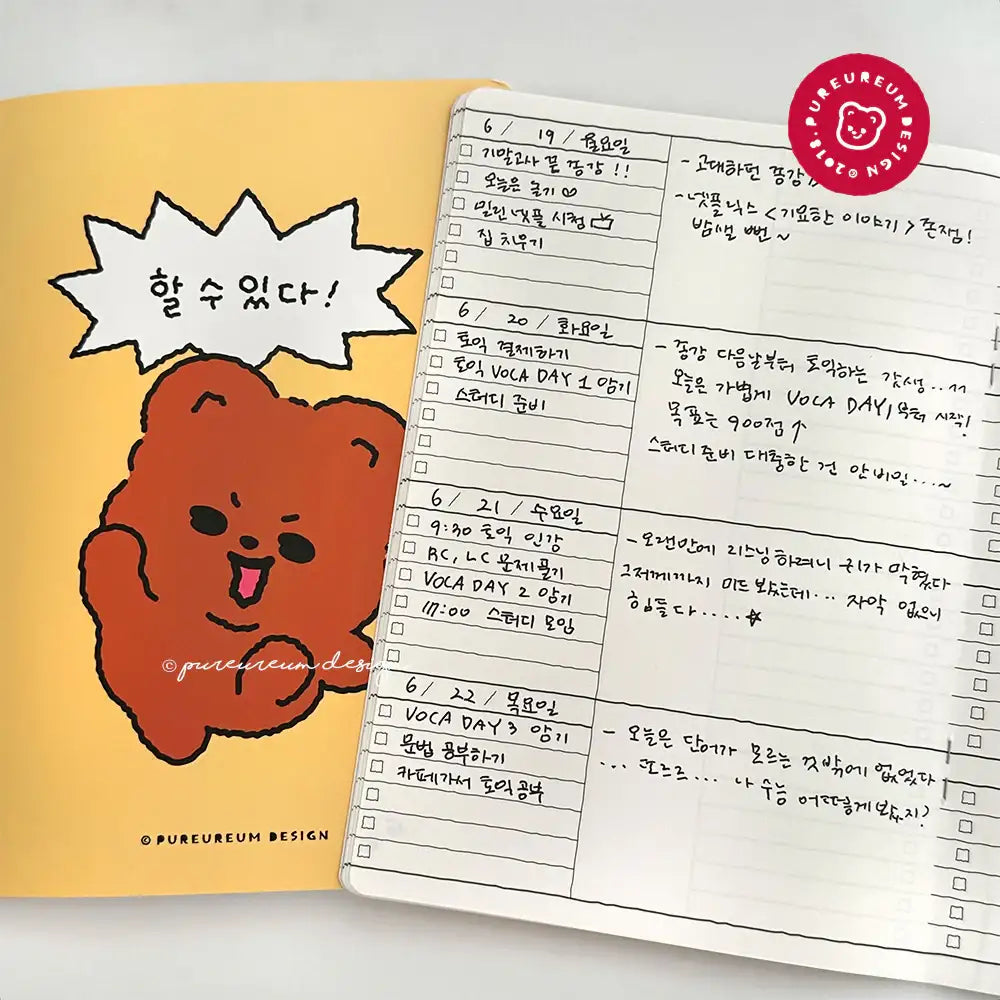 할 수 있다!
© pureureum desig
© PUREUREUM DESIGN
PUREUREUM DESIGN © 2018.
6 / 19 / 월요일
기말고사 끝 종강 !!
오늘은 놀기♡
밀린 넷플 시청
집 치우기
- 고대하던 종강
- 넷플릭스 <기묘한 이야기> 존잼!
밤샐 뻔~
6 / 20 / 화요일
토익 결제하기
토익 VOCA DAY 1 암기
스터디 준비
- 종강 다음날부터 토익하는 갓생..ㄲ
오늘은 가볍게 VOCA DAY1부터 시작!
목표는 900점↑
스터디 준비 대충한 건 안 비밀...~
6 / 21 / 수요일
9:30 토익 인강
RC, LC 문제풀기
VOCA DAY 2 암기
17:00 스터디 모임
- 오랜만에 리스닝 하려니 귀가 막혔다
그저께까지 미드 봤는데... 자막 없으니
힘들다....☆
6 / 22 / 목요일
VOCA DAY 3 암기
문법 공부하기
카페가서 토익공부
- 오늘은 단어가 모르는 것밖에 없었다
... 또르르... 나 수능 어떠렇게 봤지?